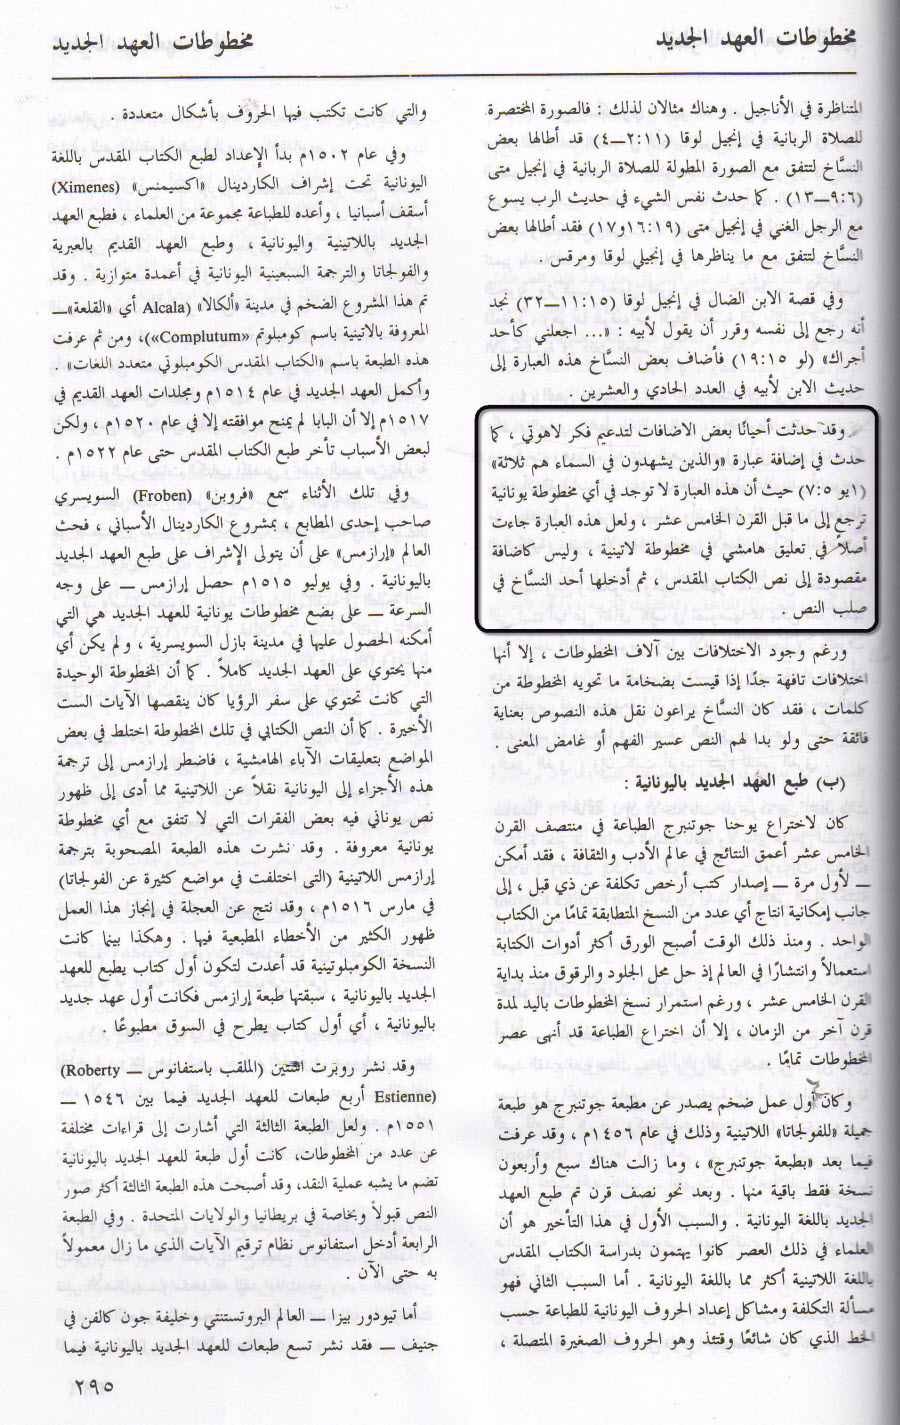 مخطوطات العهد الجديد
مخطوطات العهد الجديد
المتناظرة في الأناجيل . وهناك مثالان لذلك : فالصورة المختصرة
للصلاة الربانية في إنجيل لوقا (١١:٢ــ٤) قد أطالها بعض
النسَّاخ لتتفق مع الصورة المطولة للصلاة الربانية في إنجيل متى
(٩:٦ــ١٣) . كما حدث نفس الشيء في حديث الرب يسوع
مع الرجل الغني في إنجيل متى (١٦:١٩و١٧) فقد أطالها بعض
النسَّاخ لتتفق مع ما يناظرها في إنجيلي لوقا ومرقس .
وفي قصة الابن الضال في إنجيل لوقا (١١:١٥ــ٣٢) نجد
أنه رجع إلى نفسه وقرر أن يقول لأبيه : «... اجعلني كأحد
أجراك» (لو ١٩:١٥) فأضاف بعض النسَّاخ هذه العبارة إلى
حديث الابن لأبيه في العدد الحادي والعشرين .
وقد حدثت أحيانًا بعض الاضافات لتدعيم فكر لاهوتي ، كما
حدث في إضافة عبارة «والذين يشهدون في السماء هم ثلاثة»
(١يو ٧:٥) حيث أن هذه العبارة لا توجد في أي مخطوطة يونانية
ترجع إلى ما قبل القرن الخامس عشر ، ولعل هذه العبارة جاءت
أصلاً في تعليق هامشي في مخطوطة لاتينية ، وليس كاضافة
مقصودة إلى نص الكتاب المقدس ، ثم أدخلها أحد النسَّاخ في
صلب النص .
ورغم وجود الاختلافات بين آلاف المخطوطات ، إلا أنها
اختلافات تافهة جدًا إذا قيست بضخامة ما تحويه المخطوطة من
كلمات ، فقد كان النسَّاخ يراعون نقل هذه النصوص بعناية
فائقة حتى ولو بدا لهم النص عسير الفهم أو غامض المعنى .
(ب) طبع العهد الجديد باليونانية :
كان لاختراع يوحنا جوتنبرج الطباعة في منتصف القرن
الخامس عشر أعمق النتائج في عالم الأدب والثقافة ، فقد أمكن
ــ لأول مرة ــ إصدار كتب أرخص تكلفة عن ذي قبل ، إلى
جانب إمكانية انتاج أي عدد من النسخ المتطابقة تمامًا من الكتاب
الواحد . ومنذ ذلك الوقت أصبح الورق أكثر أدوات الكتابة
استعمالاً وانتشارًا في العالم إذ حل محل الجلود والرقوق منذ بداية
القرن الخامس عشر ، ورغم استمرار نسخ المخطوطات باليد لمدة
قرن آخر من الزمان ، إلا أن اختراع الطباعة قد أنهى عصر
المخطوطات تمامًا .
وكان أول عمل ضخم يصدر عن مطبعة جوتنبرج هو طبعة
جميلة «للفولجاتا» اللاتينية وذلك في عام ١٤٥٦م ، وقد عرفت
فيما بعد «بطبعة جوتنبرج» ، وما زالت هناك سبع وأربعون
نسخة فقط باقية منها . وبعد نحو نصف قرن تم طبع العهد
الجديد باللغة اليونانية . والسبب الأول في هذا التأخير هو أن
العلماء في ذلك العصر كانوا يهتمون بدراسة الكتاب المقدس
باللغة اللاتينية أكثر مما باللغة اليونانية . أما السبب الثاني فهو
مسألة التكلفة ومشاكل إعداد الحروف اليونانية للطباعة حسب
الخط الذي كان شائعًا وقتئذ وهو الحروف الصغيرة المتصلة ،
والتي كانت تكتب فيها الحروف بأشكال متعددة .
وفي عام ١٥٠٢م بدأ الإعداد لطبع الكتاب المقدس باللغة
اليونانية تحت إشراف الكاردينال «اكسيمنس» (Ximenes)
أسقف أسبانيا ، وأعده للطباعة مجموعة من العلماء ، فطبع العهد
الجديد باللاتينية واليونانية ، وطبع العهد القديم بالعبرية
والفولجاتا والترجمة السبعينية اليونانية في أعمدة متوازية . وقد
تم هذا المشروع الضخم في مدينة «ألكالا» (Alcala أي «القلعة»ــ
المعروفة بالاتينية باسم كومبلوتم «Complutum»)، ومن ثم عرفت
هذه الطبعة باسم «الكتاب المقدس الكومبلوتي متعدد اللغات» .
وأكمل العهد الجديد في عام ١٥١٤م ومجلدات العهد القديم في
١٥١٧م إلا أن البابا لم يمنح موافقته إلا في عام ١٥٢٠م ، ولكن
لبعض الأسباب تأخر طبع الكتاب المقدس حتى عام ١٥٢٢م .
وفي تلك الأثناء سمع «فروبن» (Froben) السويسري
صاحب إحدى المطابع ، بمشروع الكاردينال الأسباني ، فحث
العالم «إرازمس» على أن يتولى الإشراف على طبع العهد الجديد
باليونانية . وفي يوليو ١٥١٥م حصل إرازمس ــ على وجه
السرعة ــ على بضع مخطوطات يونانية للعهد الجديد هي التي
أمكنه الحصول عليها في مدينة بازل السويسرية ، ولم يكن أي
منها يحتوي على العهد الجديد كاملاً . كما أن المخطوطة الوحيدة
التي كانت تحتوي على سفر الرؤيا كان ينقصها الآيات الست
الأخيرة . كما أن النص الكتابي في تلك المخطوطة اختلط في بعض
المواضع بتعليقات الآباء الهامشية ، فاضطر إرازمس إلى ترجمة
هذه الأجزاء إلى اليونانية نقلاً عن اللاتينية مما أدى إلى ظهور
نص يوناني فيه بعض الفقرات التي لا تتفق مع أي مخطوطة
يونانية معروفة . وقد نشرت هذه الطبعة المصحوبة بترجمة
إرازمس اللاتينية (التى اختلفت في مواضع كثيرة عن الفولجاتا)
في مارس ١٥١٦م ، وقد نتج عن العجلة في إنجاز هذا العمل
ظهور الكثير من الأخطاء المطبعية فيها . وهكذا بينما كانت
النسخة الكومبلوتينية قد أعدت لتكون أول كتاب يطبع للعهد
الجديد باليونانية ، سبقتها طبعة إرازمس فكانت أول عهد جديد
باليونانية ، أي أول كتاب يطرح في السوق مطبوعًا .
وقد نشر روبرت اشتين (الملقب باستفانوس ــ Roberty)
(Estienne أربع طبعات للعهد الجديد فيما بين ١٥٤٦ ــ
١٥٥١م . ولعل الطبعة الثالثة التي أشارت إلى قراءات مختلفة
عن عدد من المخطوطات، كانت أول طبعة للعهد الجديد باليونانية
تضم ما يشبه عملية النقد، وقد أصبحت هذه الطبعة الثالثة أكثر صور
النص قبولاً وبخاصة في بريطانيا والولايات المتحدة . وفي الطبعة
الرابعة أدخل استفانوس نظام ترقيم الآيات الذي ما زال معمولاً
به حتى الآن .
أما تيودور بيزا ــ العالم البروتستنتي وخليفة جون كالفن في
جنيف ــ فقد نشر تسع طبعات للعهد الجديد باليونانية فيما
٢٩٥